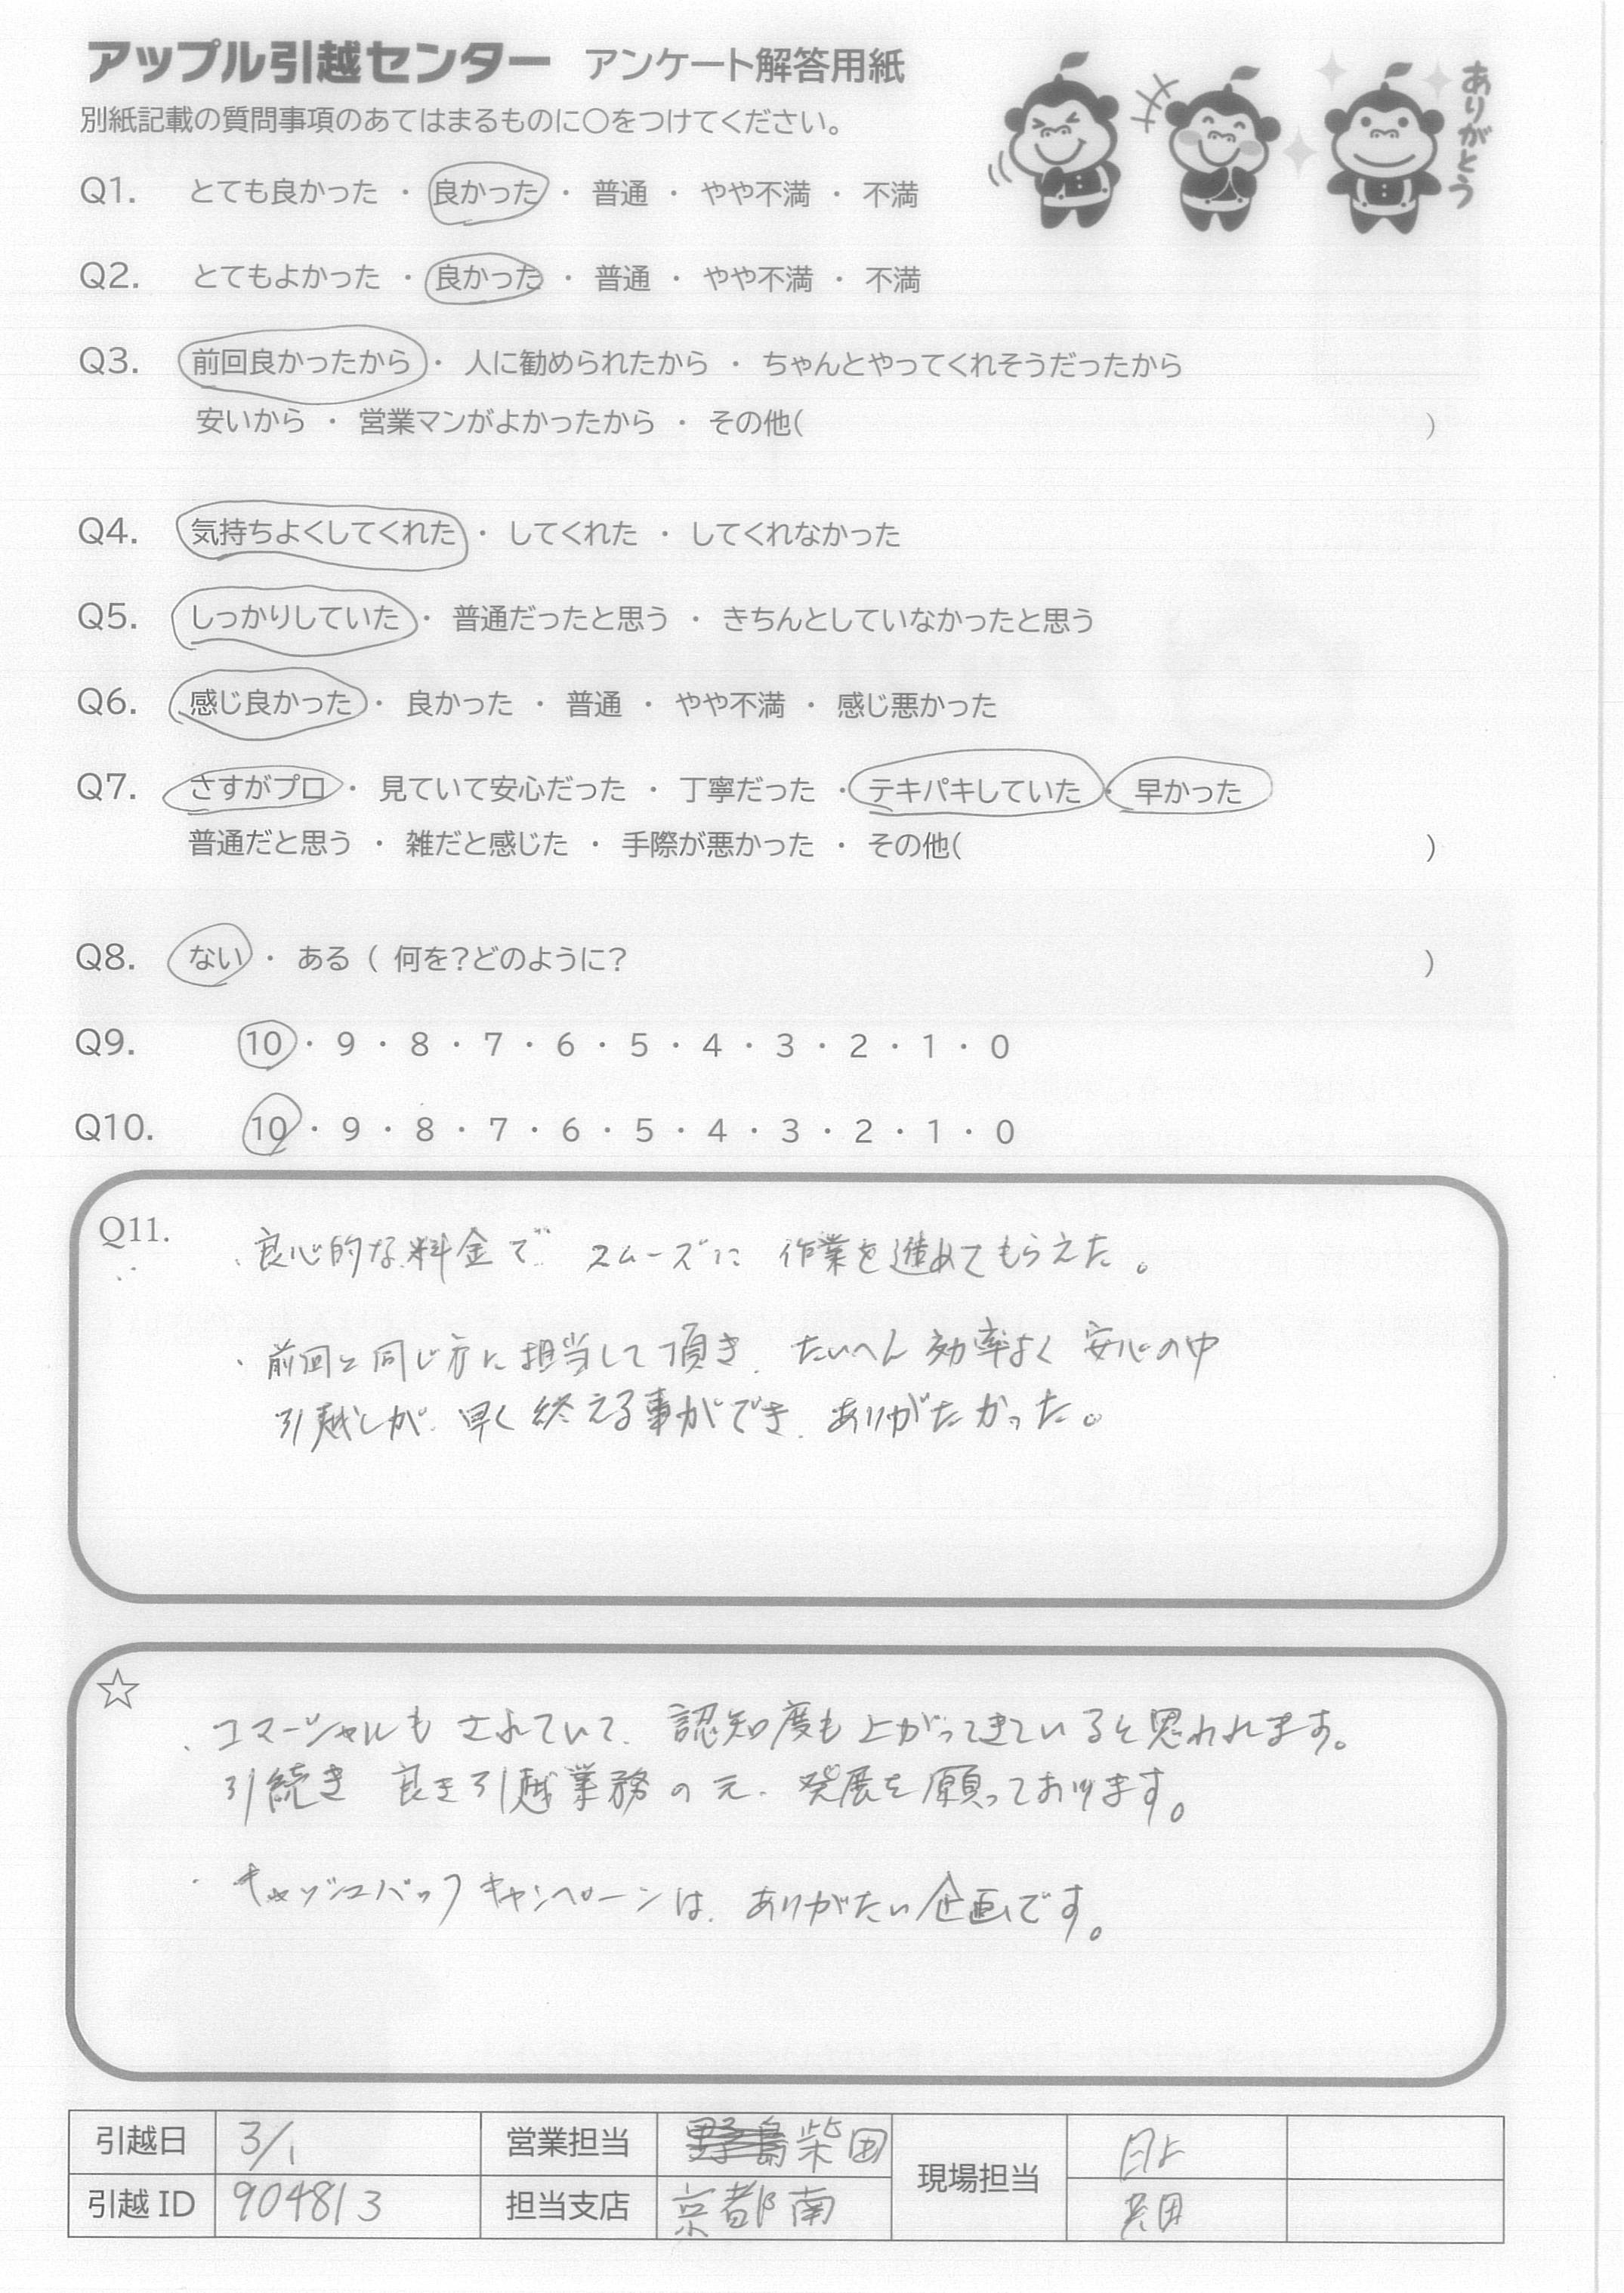 アップル引越センター アンケート解答用紙
ありがとう
別紙記載の質問事項のあてはまるものに〇をつけてください。
Q1. とても良かった ・ 良かった ・ 普通 ・ やや不満 ・ 不満
Q2. とてもよかった ・ 良かった ・ 普通 ・ やや不満 ・ 不満
Q3. 前回良かったから ・ 人に勧められたから ・ ちゃんとやってくれそうだったから
安いから ・ 営業マンがよかったから ・ その他( )
Q4. 気持ちよくしてくれた ・ してくれた ・ してくれなかった
Q5. しっかりしていた ・ 普通だったと思う ・ きちんとしていなかったと思う
Q6. 感じ良かった ・ 良かった ・ 普通 ・ やや不満 ・ 感じ悪かった
Q7. さすがプロ ・ 見ていて安心だった ・ 丁寧だった ・ テキパキしていた ・ 早かった
普通だと思う ・ 雑だと感じた ・ 手際が悪かった ・ その他( )
Q8. ない ・ ある ( 何を?どのように? )
Q9. 10 ・ 9 ・ 8 ・ 7 ・ 6 ・ 5 ・ 4 ・ 3 ・ 2 ・ 1 ・ 0
Q10. 10 ・ 9 ・ 8 ・ 7 ・ 6 ・ 5 ・ 4 ・ 3 ・ 2 ・ 1 ・ 0
Q11. ・良心的な料金で スムーズに 作業を進めてもらえた。
・前回と同じ方に担当して頂き、たいへん効率よく 安心の中
引越しが、早く終える事ができ、ありがたかった。
☆
・コマーシャルも されていて、認知度も上がってきていると思われます。
引続き 良き引越業務の元、発展を願っております。
・キャッシュバックキャンペーンは、ありがたい企画です。
引越日 3/1 営業担当 柴田 現場担当
引越ID 904813 担当支店 京都南